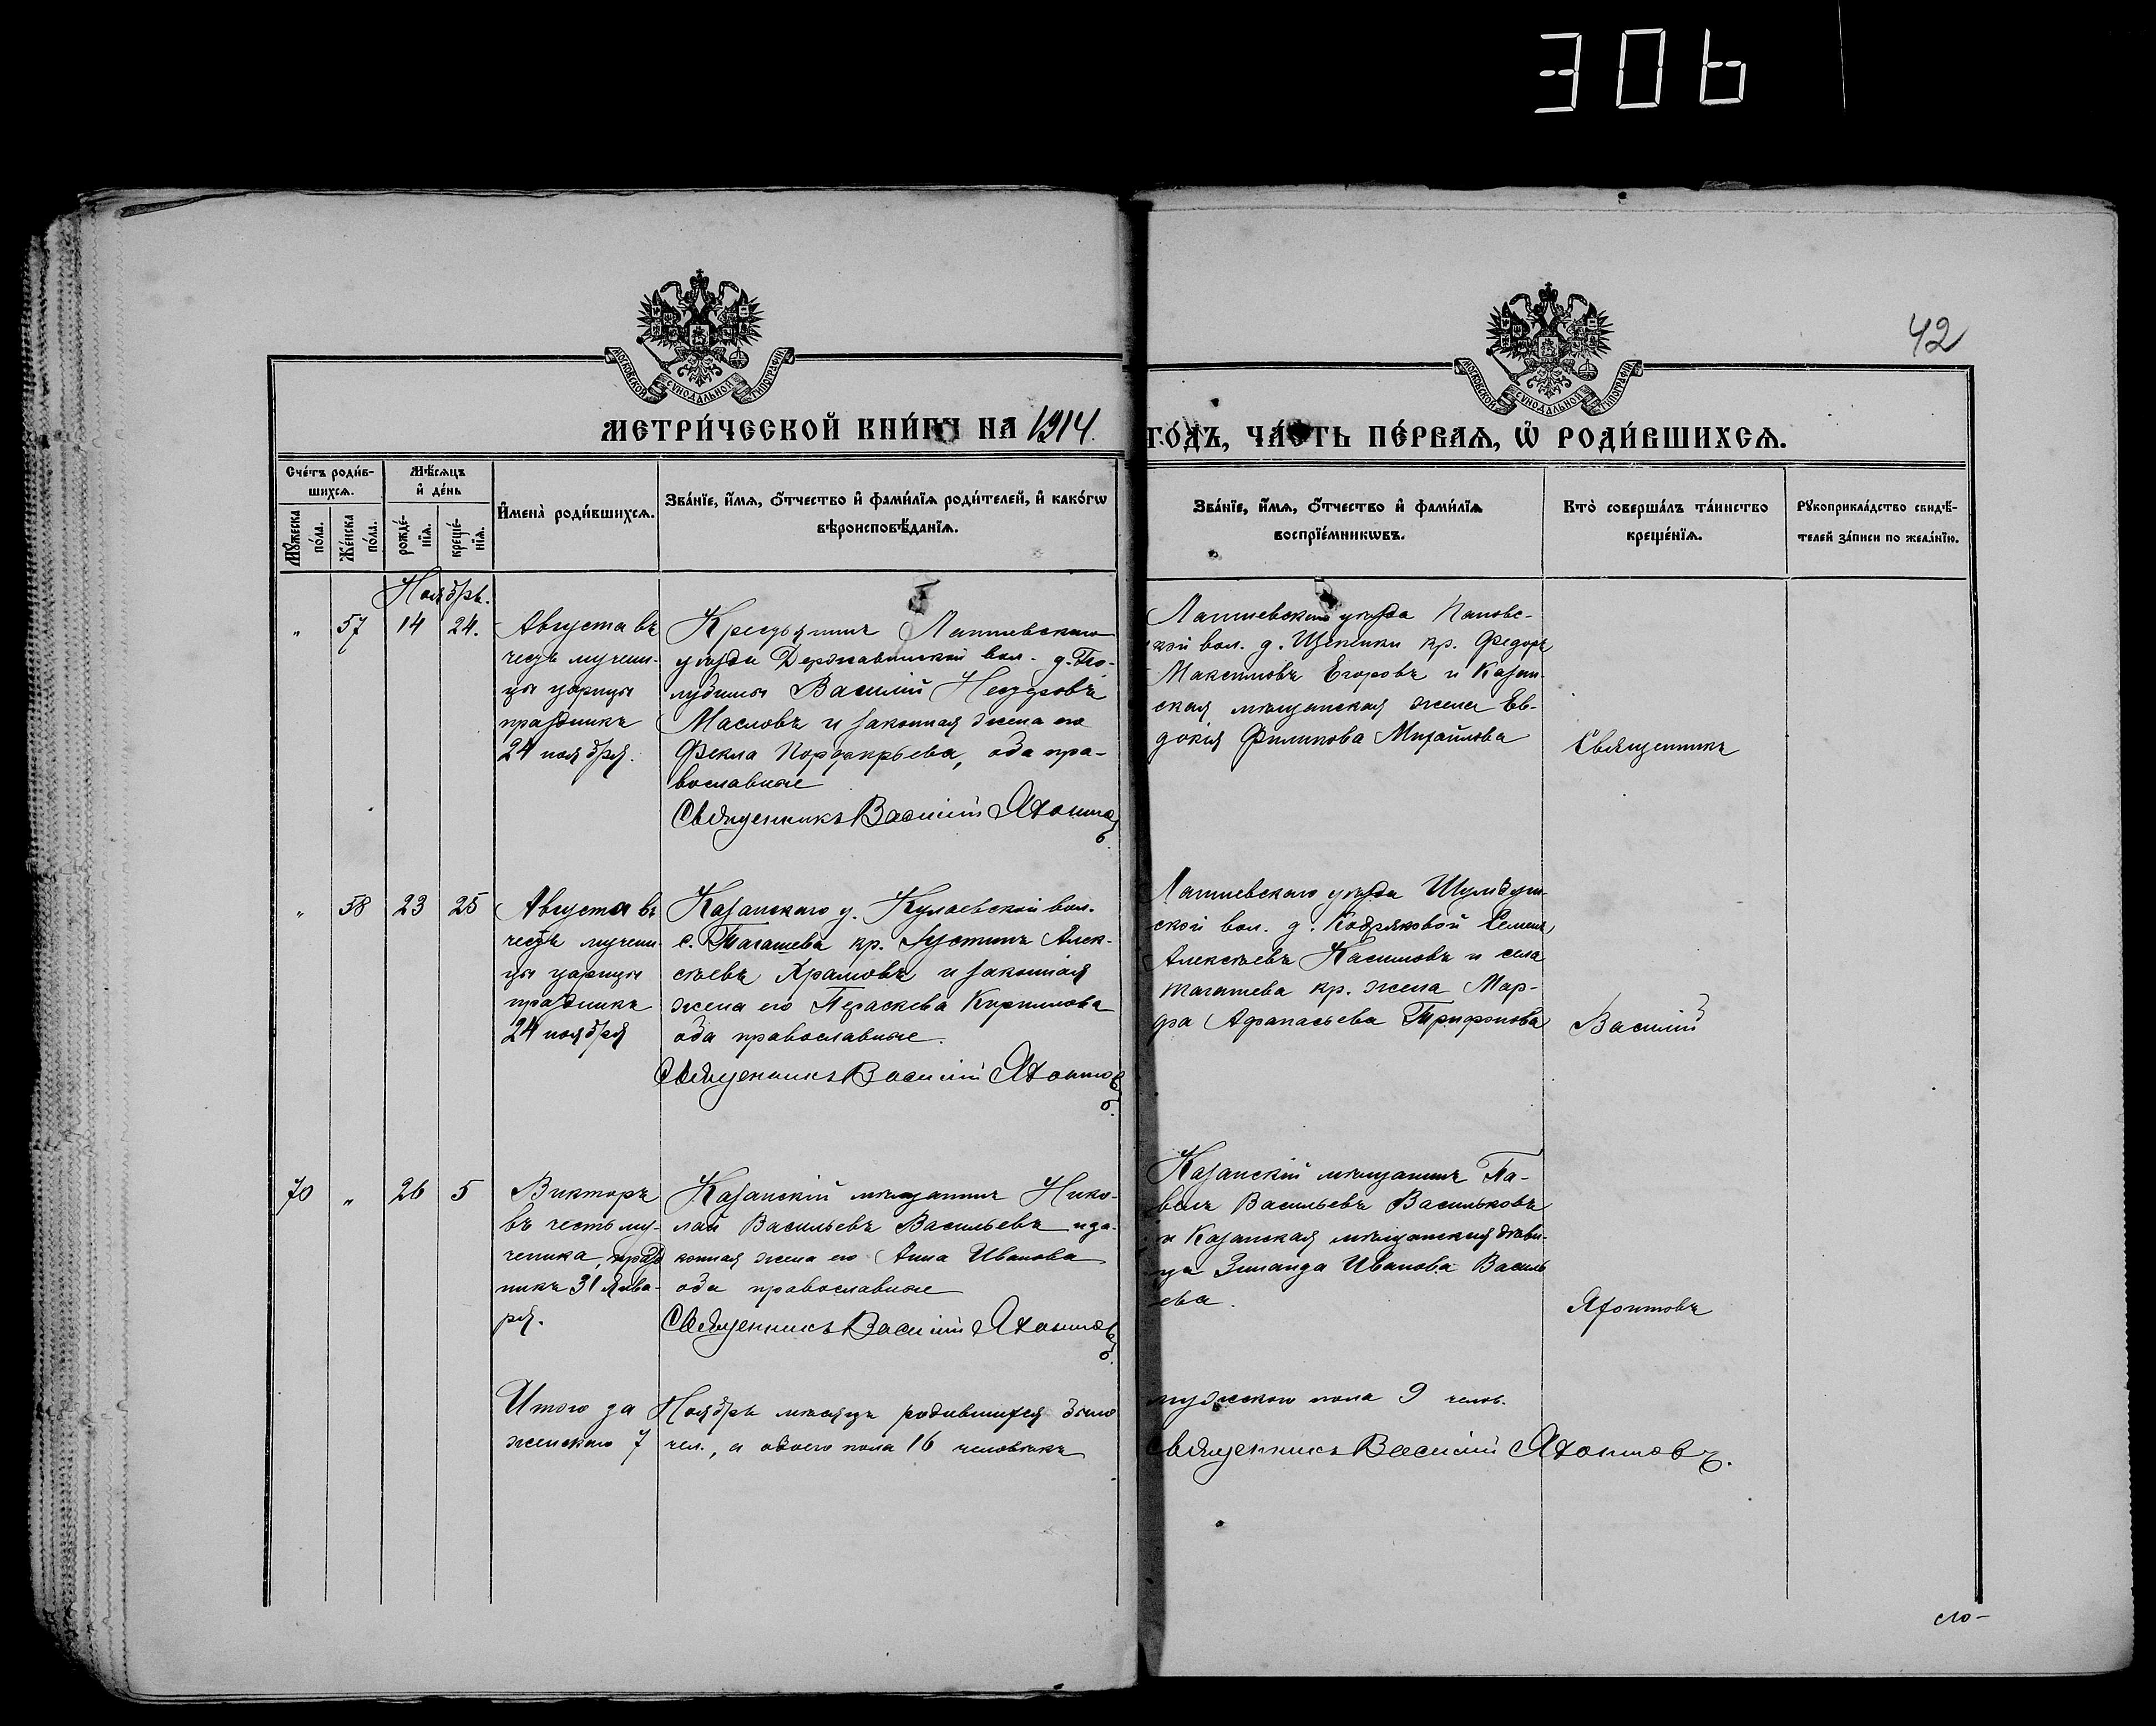 306
42
МОСКОВСКОЙ СѴНОДАЛЬНОЙ ТИПОГРАФІИ
МОСКОВСКОЙ СѴНОДАЛЬНОЙ ТИПОГРАФІИ
МЕТРИ́ЧЕСКОЙ КНИ́ГИ НА 1914. ГО́ДЪ, ЧА́СТЬ ПЕ́РВАѦ, Ѡ҆ РОДИ́ВШИХСѦ.
Сче́тъ роди́в-
шихсѧ.
Мꙋ́жеска по́ла.
Же́нска по́ла.
Мѣ́сѧцъ
и҆ де́нь
рожде́-нїѧ.
креще́-нїѧ.
И҆мена̀ роди́вшихсѧ.
Зва́нїе, и҆́мѧ, ѻ҆́тчество и҆ фами́лїѧ роди́телей, и҆ како́гѡ
вѣроисповѣ́данїѧ.
Зва́нїе, и҆́мѧ, ѻ҆́тчество и҆ фами́лїѧ
воспрїе́мникѡвъ.
Кто̀ соверша́лъ та́инство
креще́нїѧ.
Рꙋкоприкла́дство свидѣ́-
телей за́писи по жела́нїю.
Ноябрь.
" 57 14 24.
Августа въ
честь мучени-
цы царицы
праздникъ
24 ноября.
Крестьянинъ Лаишевскаго
уѣзда Державинской вол. д.
Василій
Масловъ и законная жена его
Фекла Порфирьева, оба пра-
вославные
Священникъ Василій Яхонтовъ
Лаишевскаго уѣзда
вол. д. кр. Федоръ
Максимовъ Егоровъ и Казан
ская мѣщанская жена Ев-
докія Филипова Михайлова
Священникъ
" 58 23 25
Августа въ
честь мучени
цы царицы
праздникъ
24 ноября
Казанскаго у. Кулаевской вол.
с. Тагашева кр. Іустинъ Алек-
сѣевъ Храмовъ и законная
жена его Параскева Кирилова
оба православные.
Священникъ Василій Яхонтовъ
Лаишевскаго уѣзда
ской вол. д. Кодряковой Семенъ
Алексѣевъ Касимовъ и села
Тагашева кр. жена Мар-
фа Афанасьева Трифонова
Василій
70 " 26 5
Викторъ
въ честь му-
ченика, празд
никъ 31 Янва-
ря.
Казанскій мѣщанинъ Нико-
лай Васильевъ Васильевъ и за-
конная жена его Анна Иванова
оба православные
Священникъ Василій Яхонтовъ
Казанскій мѣщанинъ Па-
велъ Васильевъ Васильковъ
и Казанская мѣщанская дѣви-
ца Зинаида Иванова Василь
ева.
Яхонтовъ
Итого за Ноябрь мѣсяцъ родившихся было мужского пола 9 челов.
женскаго 7 чел., а обоего пола 16 человѣкъ
Священникъ Василій Яхонтовъ.